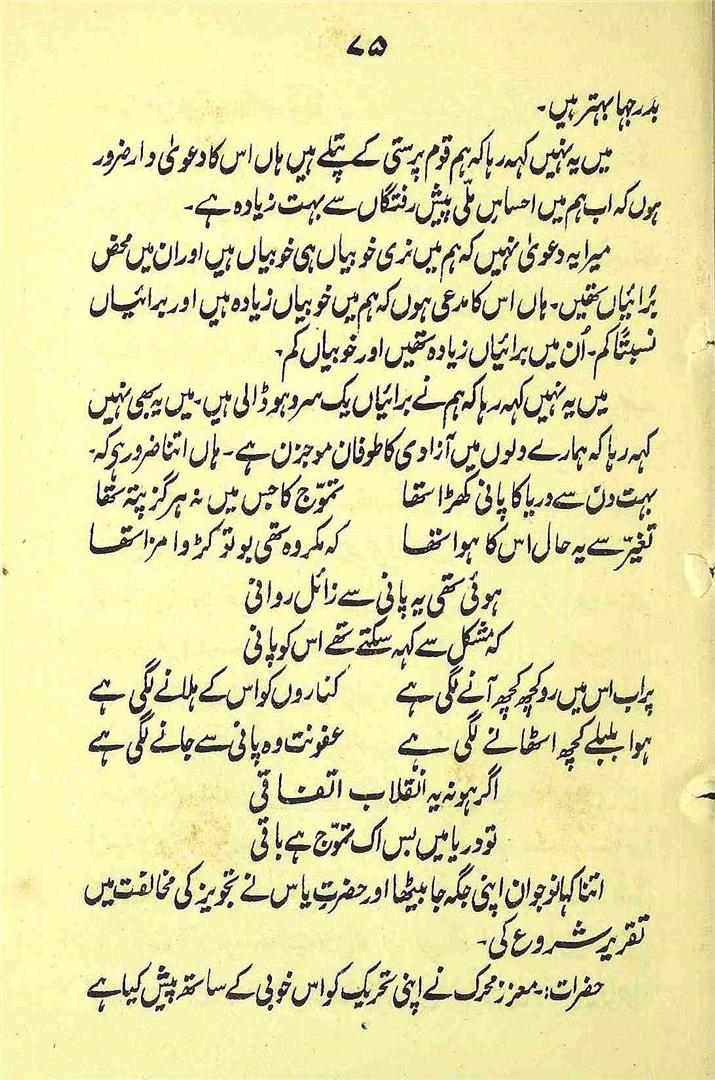 ۷۵
بدرجہا بہتر ہیں۔
میں یہ نہیں کہہ رہا کہ ہم قوم پرستی کے پتلے ہیں ہاں اس کا دعویٰ دار ضرور
ہوں کہ اب ہم میں احساس ملّی پیش رفتگاں سے بہت زیادہ ہے۔
میرا یہ دعویٰ نہیں کہ ہم میں نری خوبیاں ہی خوبیاں ہیں اور ان میں محض
بُرائیاں تھیں۔ ہاں اس کا مدعی ہوں کہ ہم میں خوبیاں زیادہ ہیں اور برائیاں
نسبتاً کم۔ اُن میں برائیاں زیادہ تھیں اور خوبیاں کم۔
میں یہ نہیں کہہ رہا کہ ہم نے برائیاں یک سر دھو ڈالی ہیں۔ میں یہ بھی نہیں
کہہ رہا کہ ہمارے دلوں میں آزادی کا طوفان موجزن ہے۔ ہاں اتنا ضرور ہے کہ۔
بہت دن سے دریا کا پانی کھڑا تھا تموّج کا جس میں نہ ہرگز پتہ تھا
تغیّر سے یہ حال اس کا ہوا تھا کہ مکروہ تھی بو تو کڑوا مزا تھا
ہوئی تھی یہ پانی سے زائل روانی
کہ مشکل سے کہہ سکتے تھے اس کو پانی
پر اب اس میں رو کچھ کچھ آنے لگی ہے کناروں کو اس کے ہلانے لگی ہے
ہوا بلبلے کچھ اٹھانے لگی ہے عفونت وہ پانی سے جانے لگی ہے
اگر ہو نہ یہ انقلاب اتفاقی
تو دریا میں بس اک تموّج ہے باقی
اتنا کہا نوجوان اپنی جگہ جا بیٹھا اور حضرتِ یاس نے تجویز کی مخالفت میں
تقریر شروع کی۔
حضرات:۔ معزز محرک نے اپنی تحریک کو اس خوبی کے ساتھ پیش کیا ہے